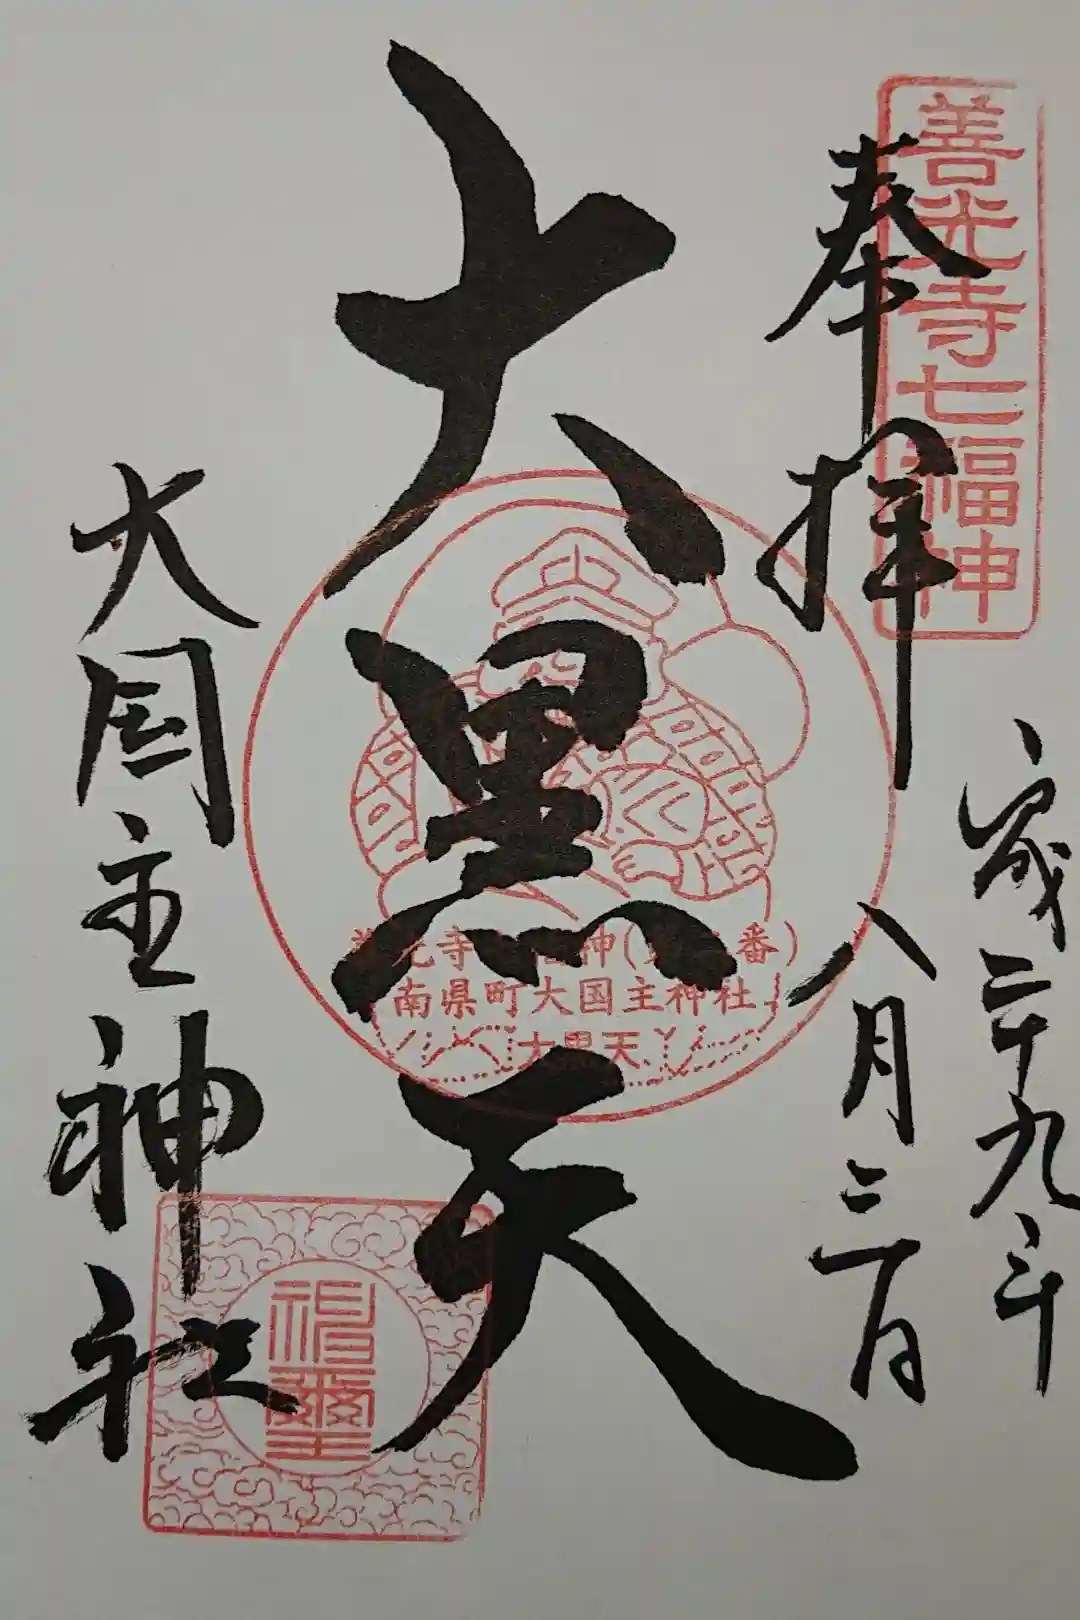 善光寺七福神
奉拝
歳二十九年
八月三日
大黒天
善光寺七福神(第三番)
南県町大国主神社
大黒天
大国主神社